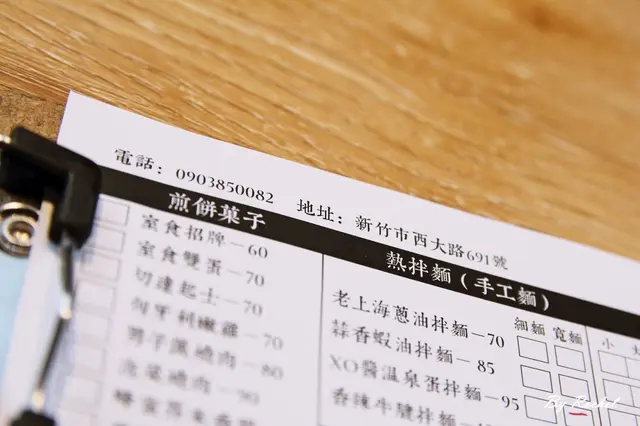 電話：0903850082 地址：新竹市西大路691號
煎餅菓子
室食招牌－60
室食雙蛋－70
切達起士－70
匈牙利嫩雞－70
男子漢燒肉－80
泡菜燒肉－90
熱拌麵（手工麵）
細麵 寬麵
老上海蔥油拌麵－70
蒜香蝦油拌麵－85
XO醬溫泉蛋拌麵－95
香辣牛腱拌麵
小
By Rachel